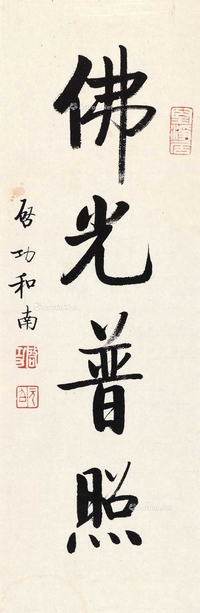 佛光普照
启功和南